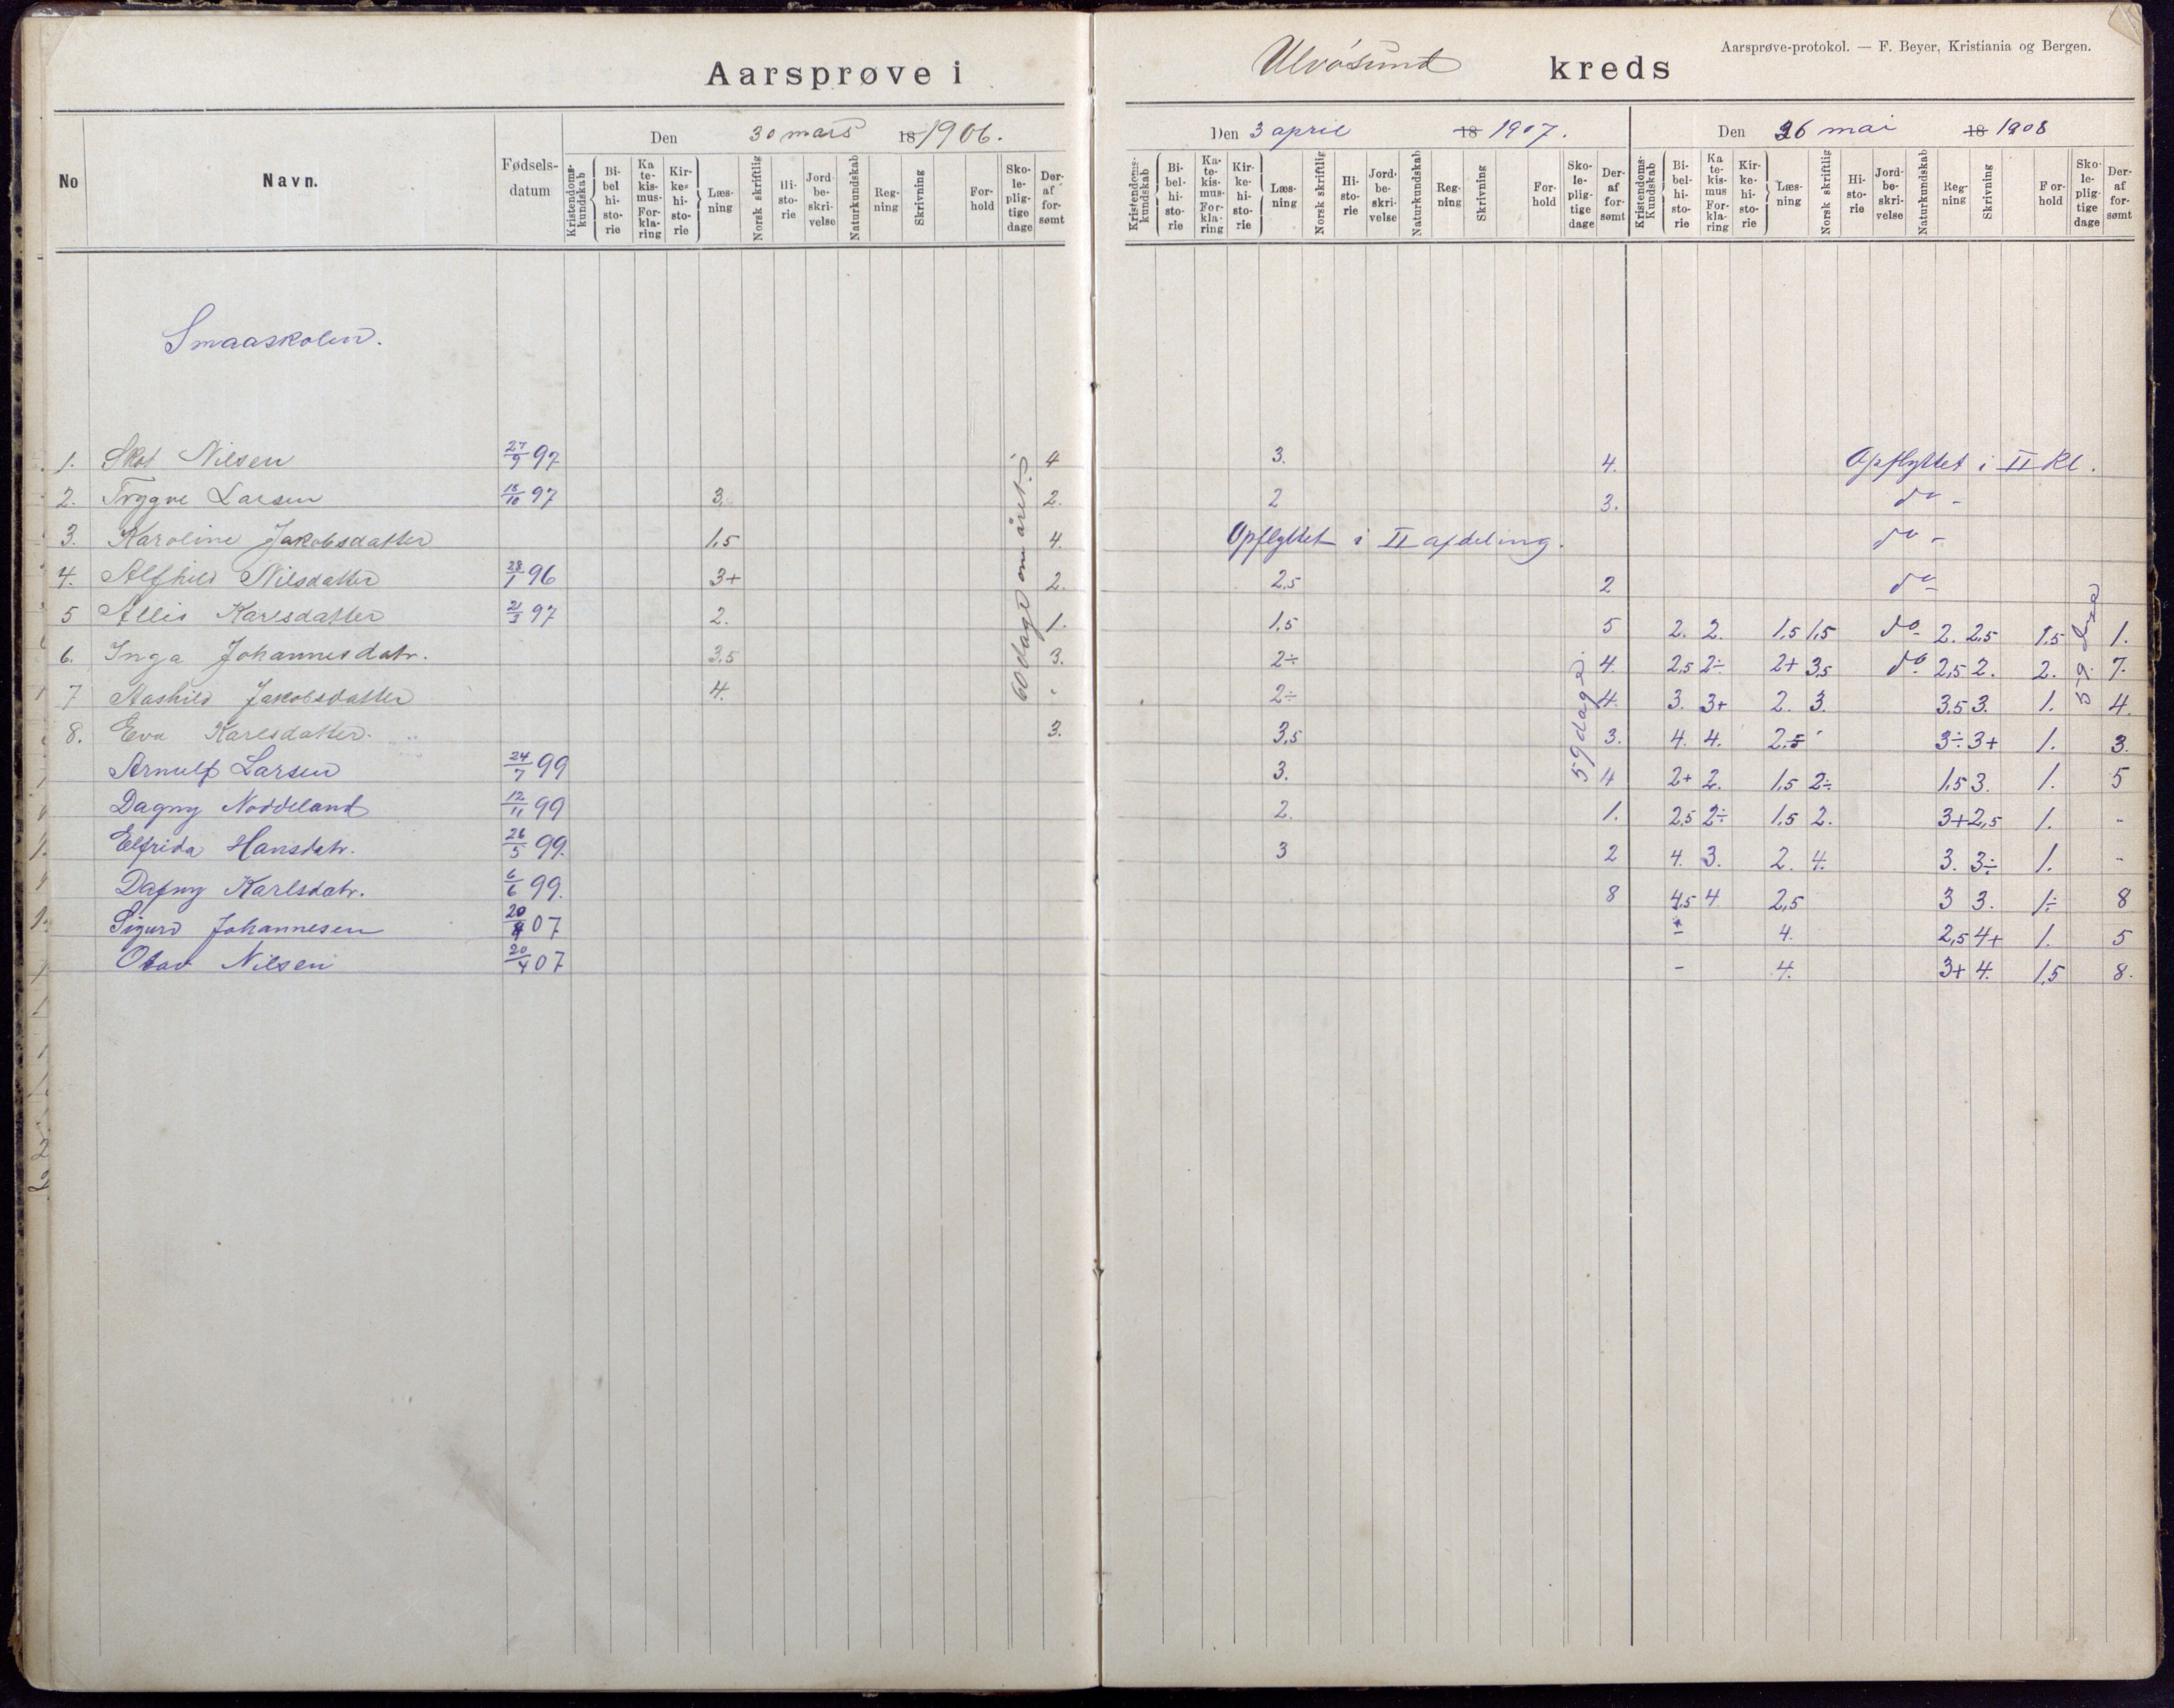 Aarsprøve i Ulvøsund kreds
Aarsprøve-protokol. — F. Beyer, Kristiania og Bergen.
Den 30 mars 18 1906.
Den 3 april 18 1907.
Den 26 mai 18 1908
No Navn. Fødselsdatum Kristendomskundskab Bibelhistorie Katekismus-Forklaring Kirkehistorie Læsning Norsk skriftlig Historie Jordbeskrivelse Naturkundskab Regning Skrivning Forhold Skolepligtige dage Deraf forsømt
Kristendomskundskab Bibelhistorie Katekismus-Forklaring Kirkehistorie Læsning Norsk skriftlig Historie Jordbeskrivelse Naturkundskab Regning Skrivning Forhold Skolepligtige dage Deraf forsømt
Kristendoms-Kundskab Bibelhistorie Katekismus Forklaring Kirkehistorie Læsning Norsk skriftlig Historie Jordbeskrivelse Naturkundskab Regning Skrivning Forhold Skolepligtige dage Deraf forsømt
Smaaskolen.
60 dage om året
59 dage
59
1. Nilsen 27/9 97 4 3. 4. Opflyttet i II Kl.
2. Trygve Larsen 18/10 97 3. 2. 2 3. do -
3. Karoline Jakobsdatter 1,5 4. Opflyttet i II afdeling. do -
4. Alfhild Nilsdatter 28/1 96 3+ 2. 2,5 2 do
5 Allis Karlsdatter 21/3 97 2. 1. 1,5 5 2. 2. 1,5 1,5 do 2. 2,5 1,5 1.
6. Inga Johannesdatr. 3,5 3. 2÷ 4. 2,5 2÷ 2+ 3,5 do 2,5 2. 2. 7.
7 Aashild Jakobsdatter 4. 2÷ 4. 3. 3+ 2. 3. 3.5 3. 1. 4.
8. Eva Karlsdatter. 3. 3,5 3. 4. 4. 2,5 3÷ 3+ 1. 3.
Arnulf Larsen 24/7 99 3. 4 2+ 2. 1,5 2÷ 1,5 3. 1. 5
Dagny Noddeland 12/11 99 2. 1. 2,5 2÷ 1,5 2. 3+ 2,5 1. -
Elfrida Hansdatr. 26/5 99. 3 2 4. 3. 2. 4. 3. 3÷ 1. -
Dagny Karlsdatr. 6/6 99. 8 4,5 4 2,5 3 3. 1÷ 8
Sigurd Johannesen 20/4 07 4. 2,5 4+ 1. 5
Olav Nilsen 20/4 07 - 4. 3+ 4. 1,5 8.